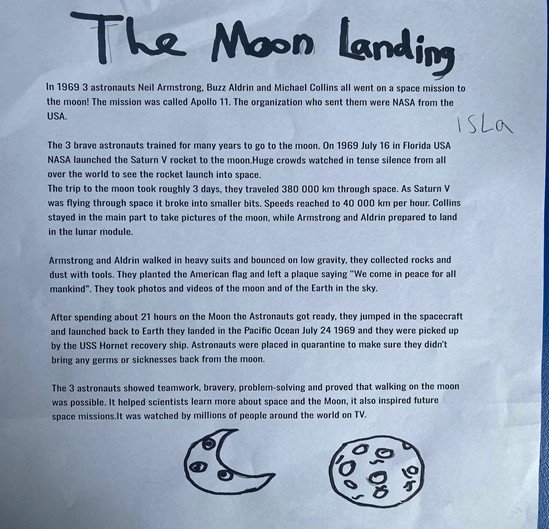 The Moon Landing
In 1969 3 astronauts Neil Armstrong, Buzz Aldrin and Michael Collins all went on a space mission to
the moon! The mission was called Apollo 11. The organization who sent them were NASA from the
USA.
ISLa
The 3 brave astronauts trained for many years to go to the moon. On 1969 July 16 in Florida USA
NASA launched the Saturn V rocket to the moon.Huge crowds watched in tense silence from all
over the world to see the rocket launch into space.
The trip to the moon took roughly 3 days, they traveled 380 000 km through space. As Saturn V
was flying through space it broke into smaller bits. Speeds reached to 40 000 km per hour. Collins
stayed in the main part to take pictures of the moon, while Armstrong and Aldrin prepared to land
in the lunar module.
Armstrong and Aldrin walked in heavy suits and bounced on low gravity, they collected rocks and
dust with tools. They planted the American flag and left a plaque saying "We come in peace for all
mankind". They took photos and videos of the moon and of the Earth in the sky.
After spending about 21 hours on the Moon the Astronauts got ready, they jumped in the spacecraft
and launched back to Earth they landed in the Pacific Ocean July 24 1969 and they were picked up
by the USS Hornet recovery ship. Astronauts were placed in quarantine to make sure they didn't
bring any germs or sicknesses back from the moon.
The 3 astronauts showed teamwork, bravery, problem-solving and proved that walking on the moon
was possible. It helped scientists learn more about space and the Moon, it also inspired future
space missions.It was watched by millions of people around the world on TV.